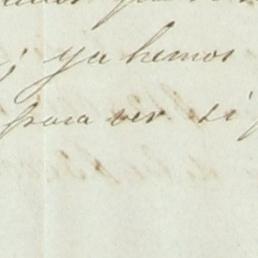 ; ya hemos
para ver si